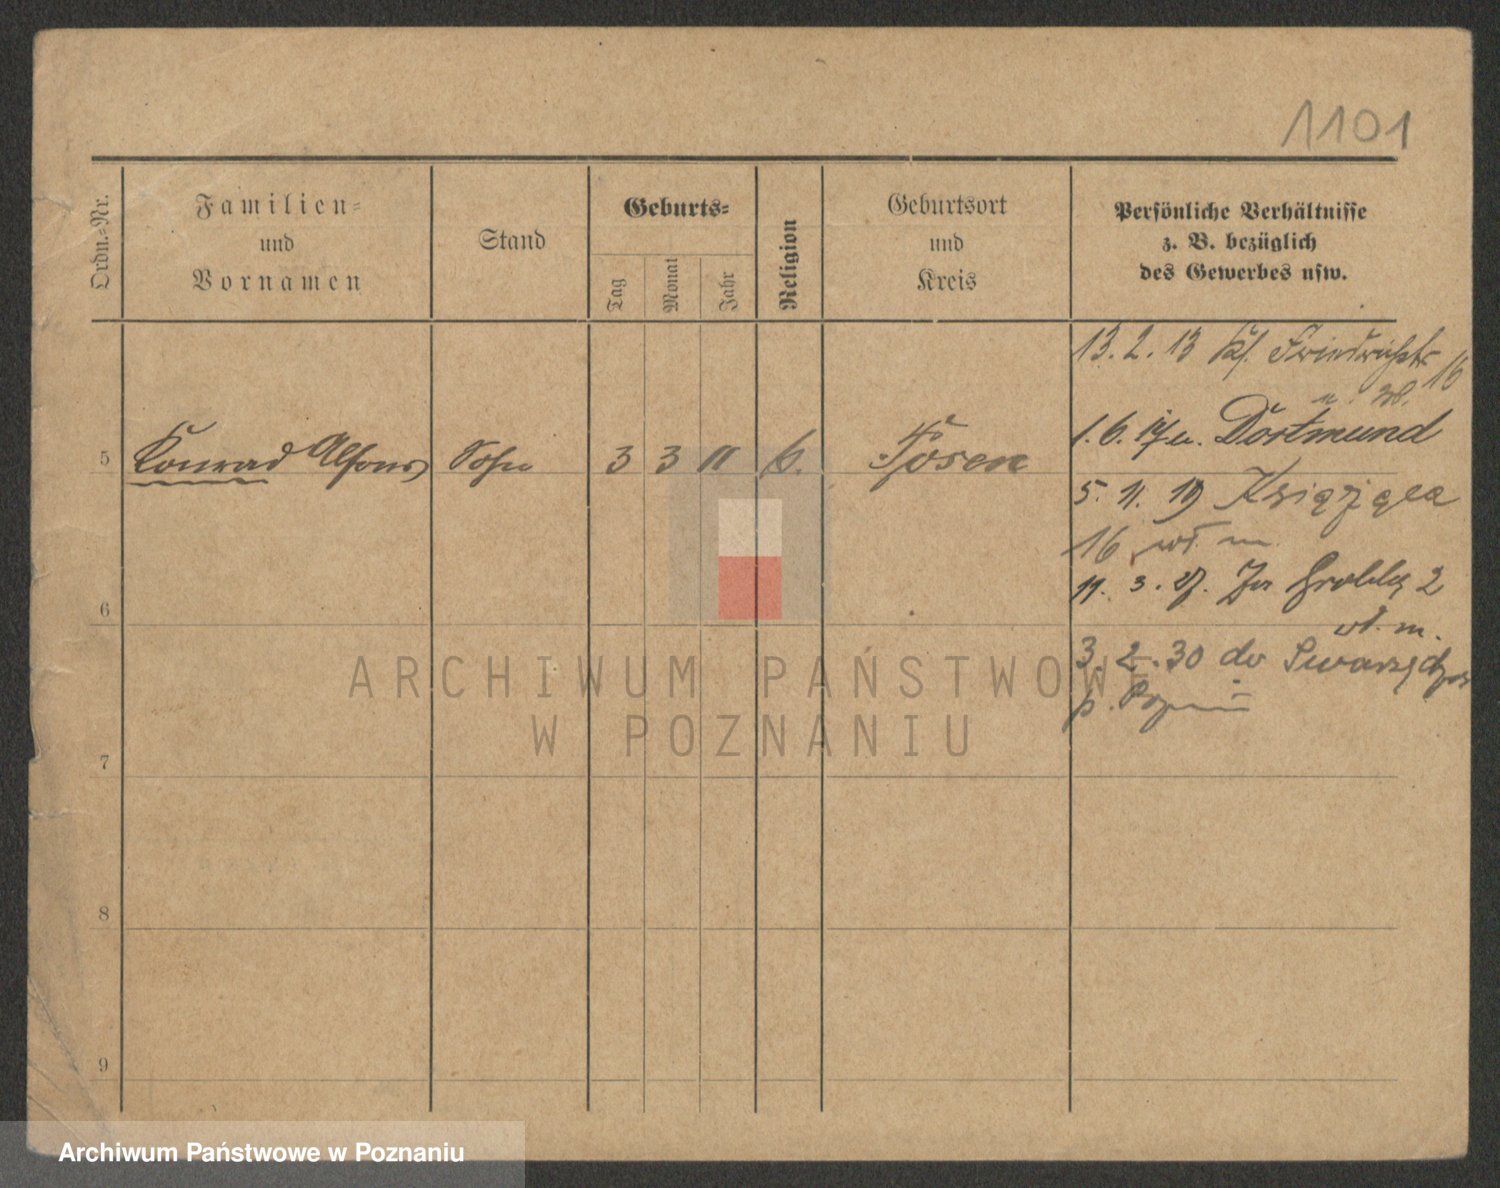 1101
Ordn.=Nr.
Familien=
und
Vornamen
Stand
Geburts=
Tag
Monat
Jahr
Religion
Geburtsort
und
Kreis
Persönliche Verhältnisse
z. B. bezüglich
des Gewerbes usw.
13. 2. 13 Friedrichstr
16
1. 6. Dortmund
5 Konrad Alfons Sohn 3 3 11 k. Posen
5. 11. 19
16 wł. m
6
11. 3. 27. Za Groblą 2
wł. m.
3. 2. 30 do Swarzędza
p. Pozn
7
8
9
ARCHIWUM PAŃSTWOWE
W POZNANIU
Archiwum Państwowe w Poznaniu